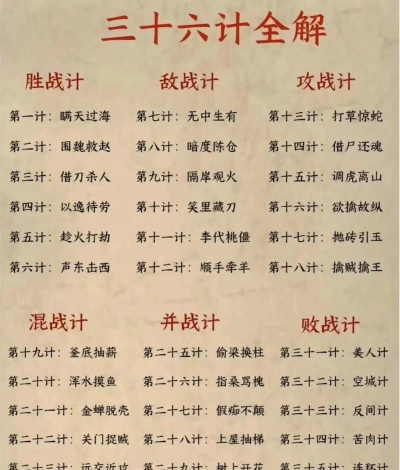 三十六计全解
胜战计
第一计：瞒天过海
第二计：围魏救赵
第三计：借刀杀人
第四计：以逸待劳
第五计：趁火打劫
第六计：声东击西
敌战计
第七计：无中生有
第八计：暗度陈仓
第九计：隔岸观火
第十计：笑里藏刀
第十一计：李代桃僵
第十二计：顺手牵羊
攻战计
第十三计：打草惊蛇
第十四计：借尸还魂
第十五计：调虎离山
第十六计：欲擒故纵
第十七计：抛砖引玉
第十八计：擒贼擒王
混战计
第十九计：釜底抽薪
第二十计：浑水摸鱼
第二十一计：金蝉脱壳
第二十二计：关门捉贼
第二十三计：远交近攻
并战计
第二十五计：偷梁换柱
第二十六计：指桑骂槐
第二十七计：假痴不癫
第二十八计：上屋抽梯
第二十九计：树上开花
败战计
第三十一计：美人计
第三十二计：空城计
第三十三计：反间计
第三十四计：苦肉计
第三十五计：连环计